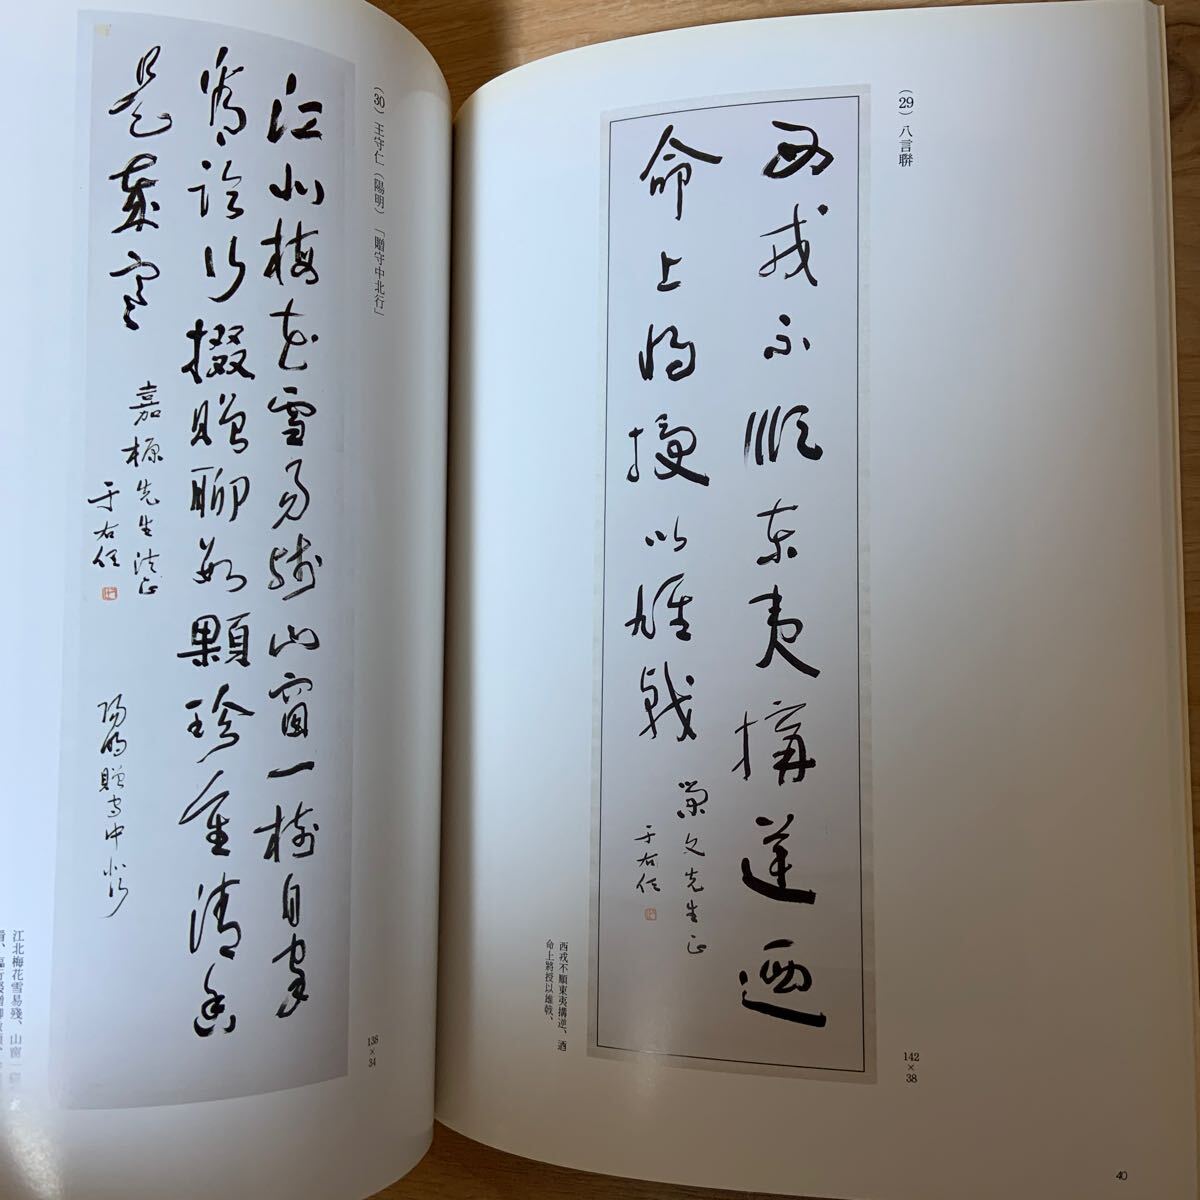 (29) 八言聯
西戎不順東夷搆逆迺
命上將授以雄戟
榮文先生正
于右任
142×38
西戎不順東夷搆逆、迺
命上將授以雄戟、
40
(30) 王守仁(陽明)「贈守中北行」
江北梅花雪易殘山窗一樹自家
看臨行掇贈聊數顆珍重清香
是歲寒
嘉先生法正
于右任
陽明贈守中北行
138×34
江北梅花雪易殘、山窗一